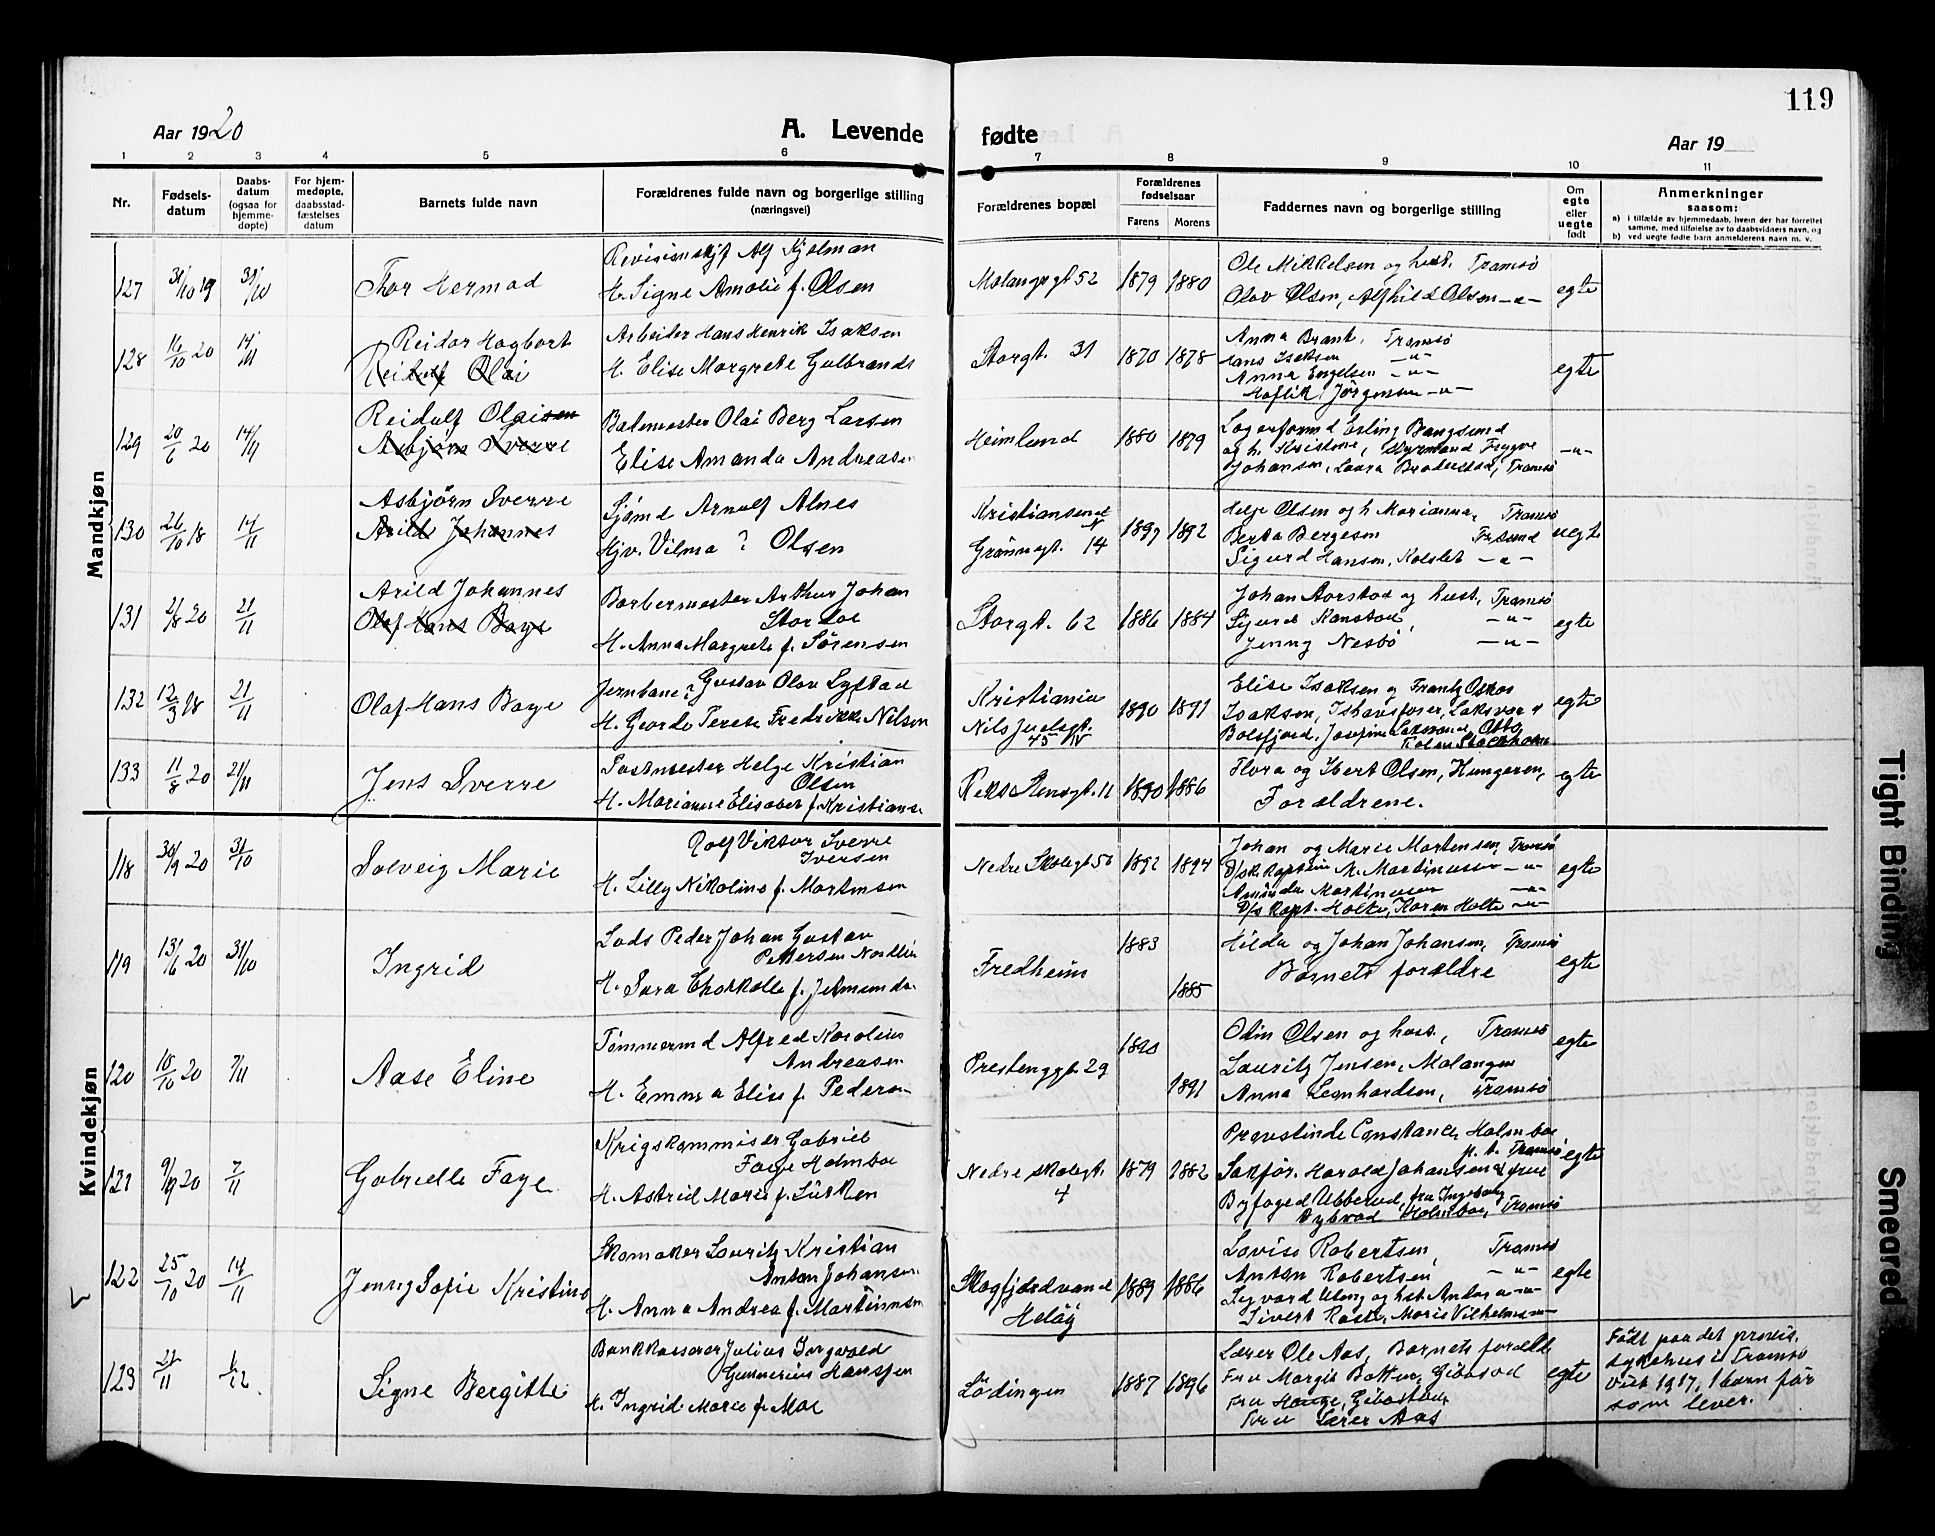 119
Aar 1920
A. Levende fødte
Aar 19
1 2 3 4 5 6 7 8 9 10 11
Nr.
Fødsels-
datum
Daabs-
datum
(ogsaa for
hjemme-
døpte)
For hjem-
medøpte,
daabsstad-
fæstelses
datum
Barnets fulde navn
Forældrenes fulde navn og borgerlige stilling
(næringsvei)
Forældrenes bopæl
Forældrenes
fødselsaar
Farens Morens
Faddernes navn og borgerlige stilling
Om
egte
eller
uegte
født
Anmerkninger
saasom:
a) i tilfælde av hjemmedaab, hvem der har forrettet
samme, med tilføielse av to daabsvidners navn, og
b) ved uegte fødte barn anmelderens navn m. v.
Mandkjøn
127 31/10 19 31/10 Thor Hermod
Alf Kjelman
H. Signe Amalie f. Olsen
Malangsgt 52 1879 1880
Ole Mikkelsen og hust. Tromsø
Olav Olsen, Alfhild Olsen -"-
egte
128 16/10 20 14/11 Reidar Hagbart
Reidulf Olai
Arbeider Hans Henrik Isaksen
H. Elise Margrete Gulbrands
Storgt. 31 1870 1878
Anna Brant, Tromsø
Hans Isaksen -"-
Anna Engelsen -"-
Jørgensen -"-
egte
129 20/6 20 14/11 Reidulf Olaisen
Asbjørn Sverre
Bademester Olai Berg Larsen
Elise Amanda Andreasen
Heimlund 1880 1879
Lagerformd Erling Bangsund
og h. Kristine, Trygve
Johansen, Laura Tromsø
-"-
130 26/10 18 14/11 Asbjørn Sverre
Arild Johannes
Sjømd Arnulf Alnes
Hjv. Vilma ? Olsen
Kristiansund N
Grønnegt. 14 1897 1892
Helge Olsen og h Marianna, Tromsø
Berta Bergesen
Sigurd Hansen, -"-
uegte
131 2/8 20 21/11 Arild Johannes
Olaf Hans Baye
Barbermester Arthur Johan
Storboe
H. Anna Margrete f. Sørensen
Storgt. 62 1886 1884
Johan Aarstad og hust., Tromsø
Sigurd -"-
Jenny Nesbø -"-
egte
132 12/3 18 21/11 Olaf Hans Baye
Jernbane? Gustav Olav
H. Terese Fredrikke Nilsen
Kristiania
Nils Juelsgt.
45 IV 1890 1891
Elise Isaksen og Frantz Oskar
Isaksen, Laksvar
Balsfjord, Josefine Otto
Stockholm
egte
133 11/8 20 21/11 Jens Sverre
Postmester Helge Kristian
Olsen
H. Marianne Elisabet f. Kristianse
Stensgt. 11 1890 1886
Flora og Olsen, Hungeren,
Forældrene.
egte
Kvindekjøn
118 30/9 20 31/10 Solveig Marie
Rolf Viktor Sverre
Iversen
H. Lilly Nikoline f. Martinsen
Nedre Skolegt 56 1892 1894
Johan og Marie Mortensen, Tromsø
D/sk kaptein M. Martinussen -"-
Amanda Martinussen -"-
D/s kapt. Holte, Karen Holte -"-
egte
119 13/6 20 31/10 Ingrid
Lods Peder Johan Gustav
Pettersen
H. Sara f.
Fredheim 1883 1885
Hilda og Johan Johansen, Tromsø
Barnets forældre
egte
120 18/10 20 7/11 Aase Eline
Tømmermd Alfred Karolius
Andreasen
H. Emma Elise f. Pedersen
Prestenggt. 29 1890 1891
Odin Olsen og hust., Tromsø
Lauritz Jensen, Malangen
Anna Leonhardsen, Tromsø
egte
121 9/9 20 7/11 Gabrielle Faye
Krigskommisær Gabriel
Faye Holmboe
H. Astrid Marie f. Lürken
Nedre skolegt.
4 1879 1882
Provstinde Constance Holmboe
p. t. Tromsø
Sakfør. Harald Johansen og frue
Byfoged Ubberud, fru Ingeborg
Dybvad Holmboe, Tromsø
egte
122 25/10 20 14/11 Jenny Sofie Kristine
Skomaker Lauritz Kristian
Anton Johansen
H. Anna Andrea f. Martinussen
Skogfjordvand
Helöy 1889 1886
Lovise Robertsen, Tromsø
Anton Robertsen -"-
Sigvard og hst. Anda -"-
Sivert Marie Vilhelmsen -"-
egte
123 21/11 1/12 Signe Bergitte
Bankkasserer Julius Ingvald
Gunnerius Hanssen
H. Ingrid Marie f. Moe
Lödingen 1887 1896
Lærer Ole Aas, Barnets forældre
Fru Margit Gibostad
Fru Hauge, Gibostad
Fru Lærer Aas
egte
Født paa det provis.
sykehus i Tromsø
Viet 1917, 1 barn før
som lever.
Tight Binding
Smeared